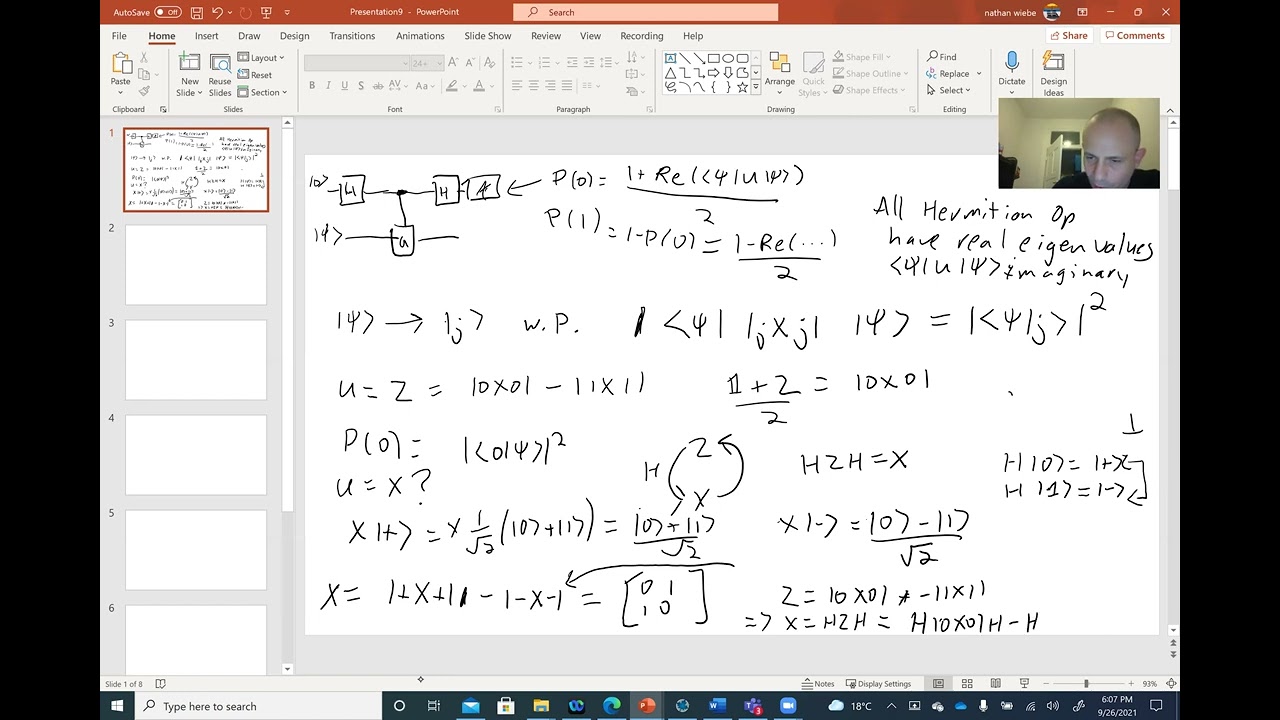 AutoSave Off Presentation9 - PowerPoint Search nathan wiebe
File Home Insert Draw Design Transitions Animations Slide Show Review View Recording Help Share Comments
Paste New Slide Reuse Slides Layout Reset Section 24+ B I U S ab AV Aa A Arrange Quick Styles Shape Fill Shape Outline Shape Effects Find Replace Select Dictate Design Ideas
Clipboard Slides Font Paragraph Drawing Editing Voice Designer
1
2
3
4
5
6
|0> H H P(0) = 1+Re(<Ψ|U|Ψ>) / 2
|Ψ> U P(1) = 1-P(0) = 1-Re(...) / 2
All Hermition Op
have real eigenvalues
<Ψ|U|Ψ> imaginary
|Ψ> → |j> w.P. |<Ψ| |j><j| |Ψ> = |<Ψ|j>|²
U = Z = |0><0| - |1><1| 1+Z / 2 = |0><0|
P(0) = |<0|Ψ>|²
H Z X HZH = X
U = X?
H|0> = |+>
H|1> = |->
X|+> = X 1/√2 (|0>+|1>) = |0>+|1> / √2 X|-> = |0>-|1> / √2
X = |+><+| - |-><-| = [0 1 1 0]
Z = |0><0| -|1><1|
=> X = HZH = H|0><0|H - H
Slide 1 of 8 Notes Display Settings 93%
Type here to search 18°C 6:07 PM
9/26/2021